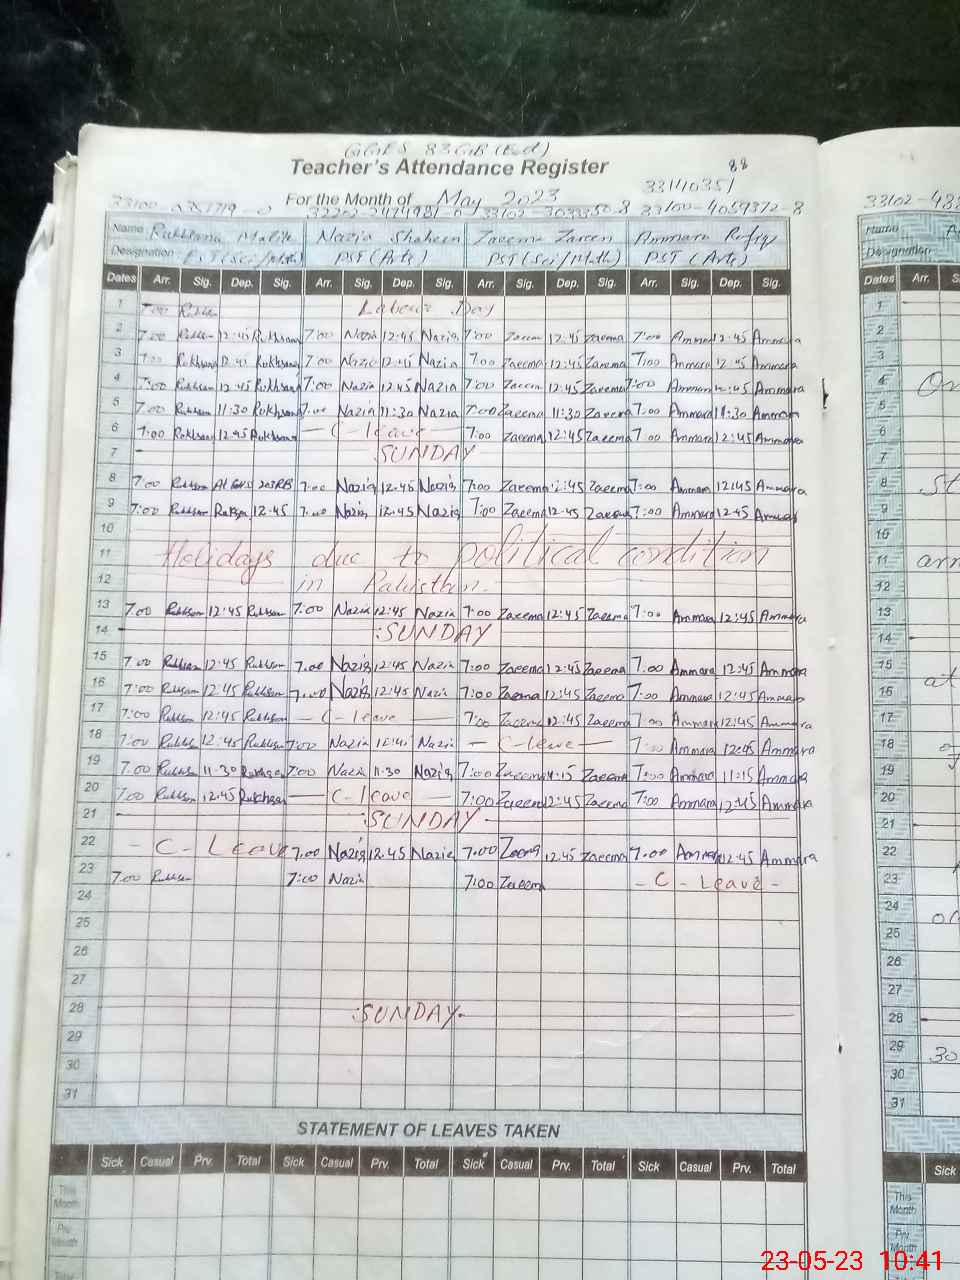 GGES 83GB (East)
Teacher's Attendance Register
88
33110351
For the Month of May 2023
33102-3033350-8 33100-4059372-8 33102-
Name Rukhsana Malik Nazia Shaheen Zaeema Zareen Ammara Rafiq Name
Designation PST(Sci/Math) PST(Arts) PST(Sci/Math) PST (Arts) Designation
Dates Arr. Sig. Dep. Sig. Arr. Sig. Dep. Sig. Arr. Sig. Dep. Sig. Arr. Sig. Dep. Sig. Dates Arr.
1 7:00 Rukhsa Labour Day 1
2 7:00 Rukhsan 12:45 Rukhsana 7:00 Nazia 12:45 Nazia 7:00 Zaeem 12:45 Zaeema 7:00 Ammara 12:45 Ammara 2
3 7:00 Rukhsan 12:45 Rukhsana 7:00 Nazia 12:45 Nazia 7:00 Zaeema 12:45 Zaeema 7:00 Ammara 12:45 Ammara 3
4 7:00 Rukhsan 12:45 Rukhsana 7:00 Nazia 12:45 Nazia 7:00 Zaeem 12:45 Zaeema 7:00 Ammara 12:45 Ammara 4
5 7:00 Rukhsan 11:30 Rukhsana 7:00 Nazia 11:30 Nazia 7:00 Zaeema 11:30 Zaeema 7:00 Ammara 11:30 Ammara 5
6 7:00 Rukhsan 12:45 Rukhsana - C-leave - 7:00 Zaeema 12:45 Zaeema 7:00 Ammara 12:45 Ammara 6
7 SUNDAY 7
8 7:00 Rukhsan At GGHS 203RB 7:00 Nazia 12:45 Nazia 7:00 Zaeema 12:45 Zaeema 7:00 Ammara 12:45 Ammara 8
9 7:00 Rukhsan Rukhsan 12:45 7:00 Nazia 12:45 Nazia 7:00 Zaeema 12:45 Zaeema 7:00 Ammara 12:45 Ammara 9
10 10
11 Holidays due to political condition 11
12 in Pakisthan. 12
13 7:00 Rukhsan 12:45 Rukhsan 7:00 Nazia 12:45 Nazia 7:00 Zaeema 12:45 Zaeema 7:00 Ammara 12:45 Ammara 13
14 :SUNDAY 14
15 7:00 Rukhsan 12:45 Rukhsan 7:00 Nazia 12:45 Nazia 7:00 Zaeema 12:45 Zaeema 7:00 Ammara 12:45 Ammara 15
16 7:00 Rukhsan 12:45 Rukhsan 7:00 Nazia 12:45 Nazia 7:00 Zaema 12:45 Zaeema 7:00 Ammara 12:45 Ammara 16 at
17 7:00 Rukhsan 12:45 Rukhsan - C-leave - 7:00 Zaeema 12:45 Zaeema 7:00 Ammara 12:45 Ammara 17
18 7:00 Rukhs 12:45 Rukhsan 7:00 Nazia 12:45 Nazia - C-leave - 7:00 Ammara 12:45 Ammara 18
19 7:00 Rukhs 11:30 Rukhsan 7:00 Nazia 11:30 Nazia 7:00 Zaeema 11:15 Zaeema 7:00 Ammara 11:15 Ammara 19
20 7:00 Rukhsan 12:45 Rukhsan - C-leave - 7:00 Zaeema 12:45 Zaeema 7:00 Ammara 12:45 Ammara 20
21 :SUNDAY 21
22 - C - Leave 7:00 Nazia 12:45 Nazia 7:00 Zaeema 12:45 Zaeema 7:00 Ammara 12:45 Ammara 22
23 7:00 Rukhsan 7:00 Nazia 7:00 Zaeema - C - Leave - 23
24 24
25 25
26 26
27 27
28 :SUNDAY. 28
29 29 30
30 30
31 31
STATEMENT OF LEAVES TAKEN
Sick Casual Prv. Total Sick Casual Prv. Total Sick Casual Prv. Total Sick Casual Prv. Total Sick
This Month This Month
Prv Month Prv Month
Total
23-05-23 10:41